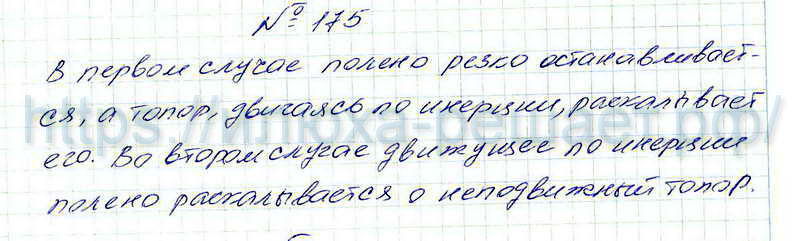 № 175
В первом случае полено резко останавливает-
ся, а топор, двигаясь по инерции, раскалывает
его. Во втором случае движущее по инерции
полено раскалывается о неподвижный топор.